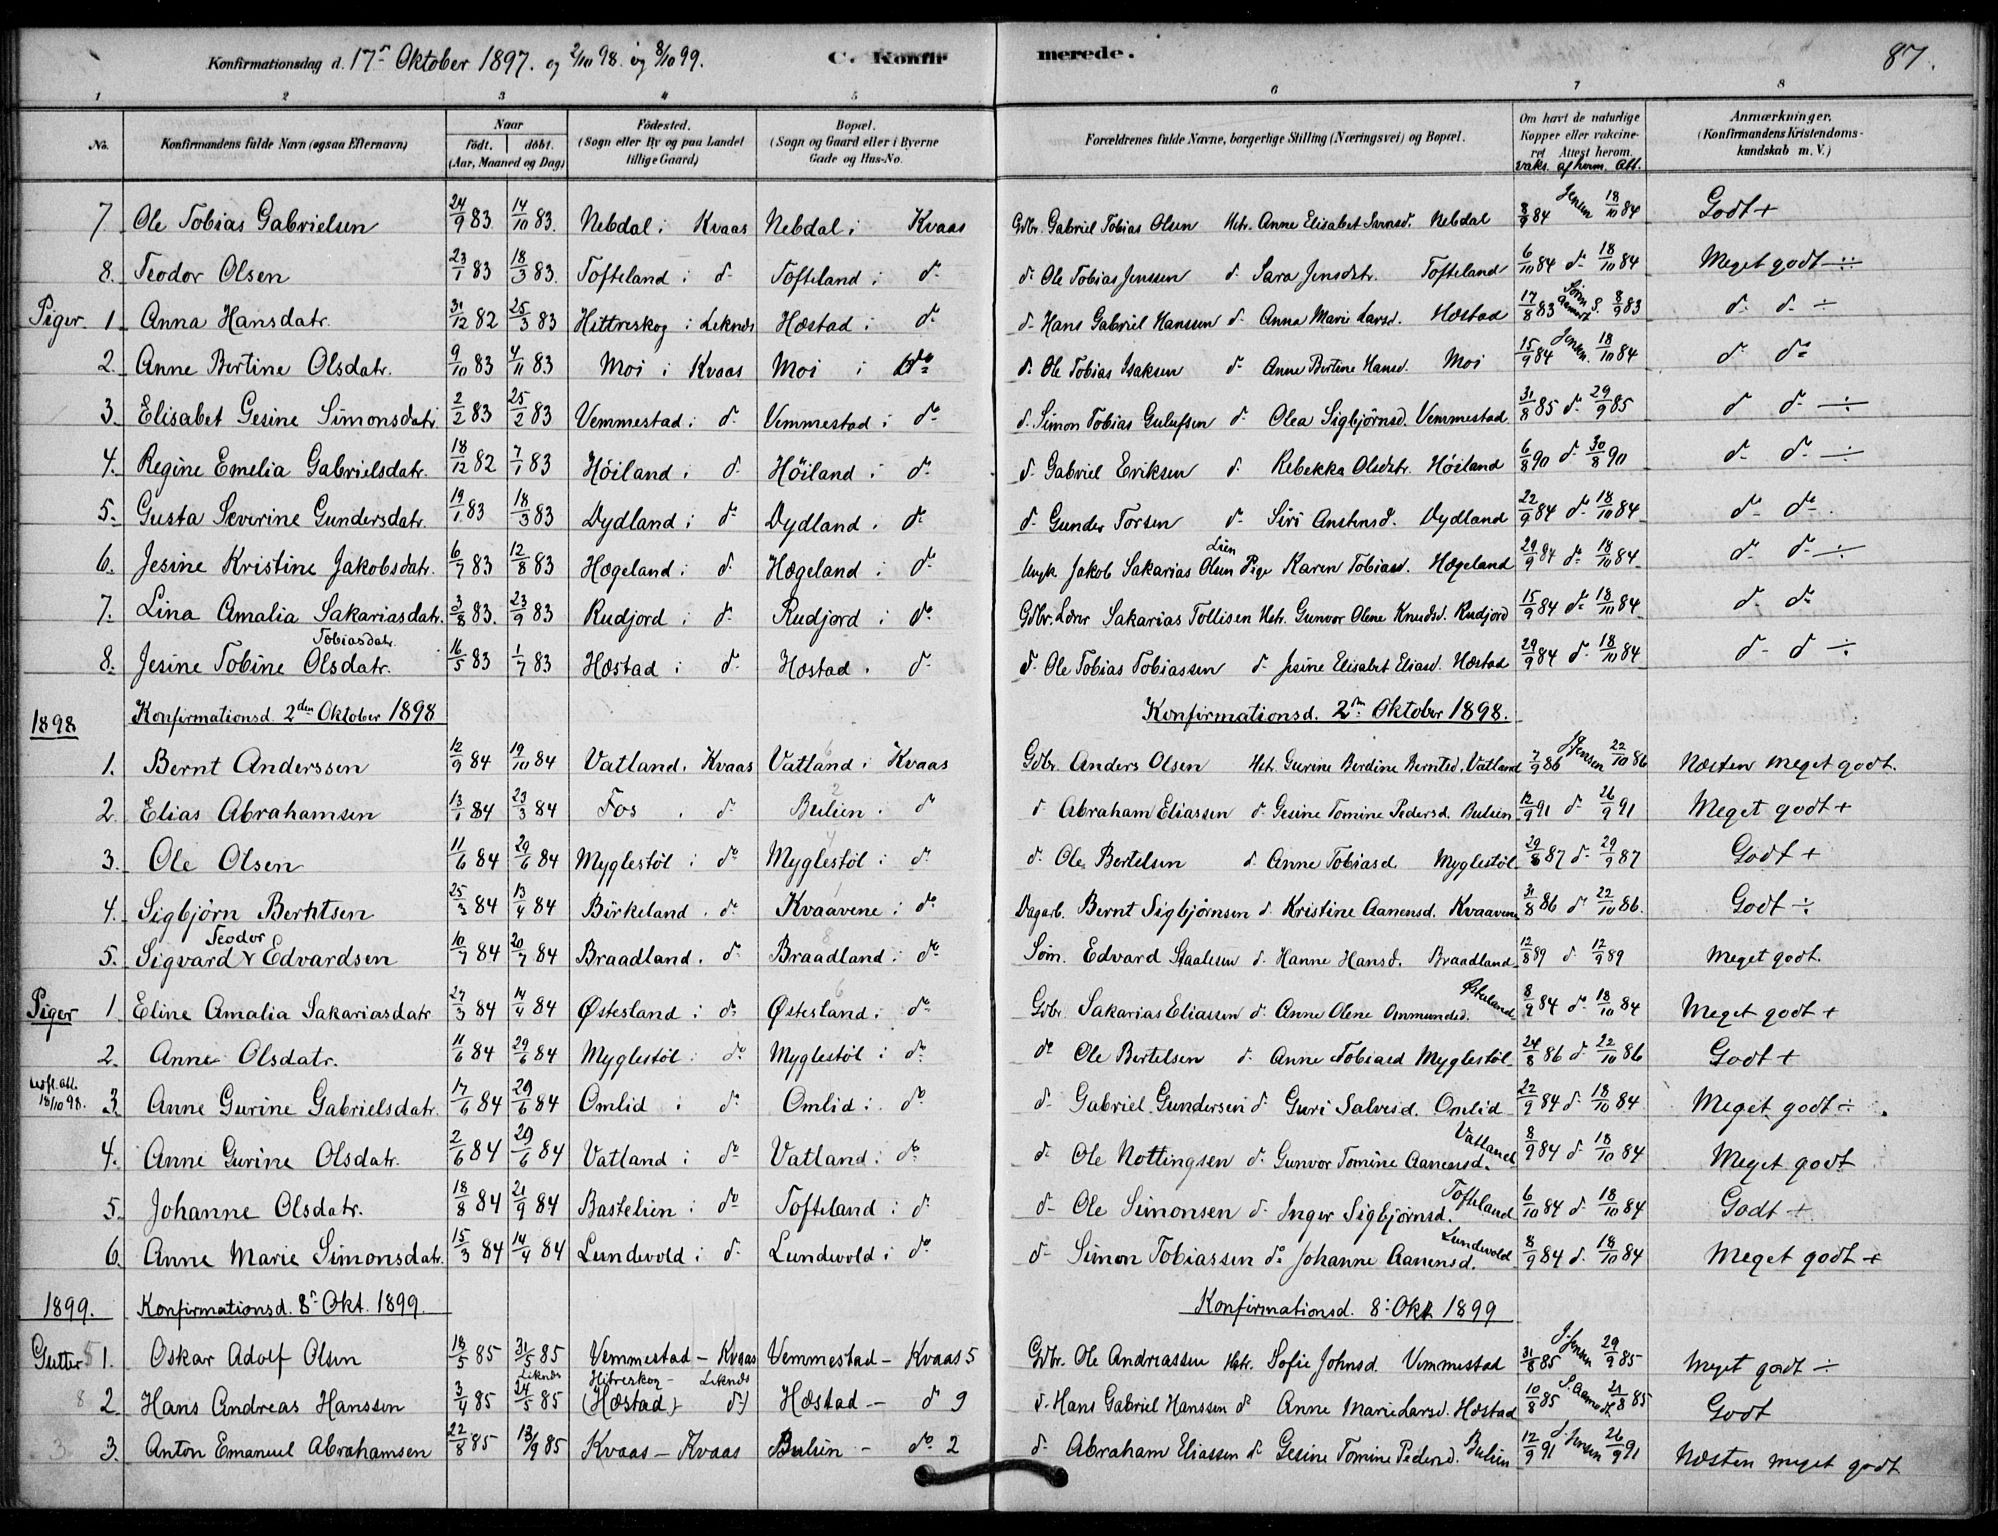 Konfirmationsdag d. 17de Oktober 1897. og 2/10 98. og 8/10 99. C. Konfirmerede. 87.
1 2 3 4 5 6 7 8
No. Konfirmandens fulde Navn (ogsaa Efternavn) Naar født. døbt. (Aar, Maaned og Dag) Fødested. (Sogn eller By og paa Landet tillige Gaard) Bopæl. (Sogn og Gaard eller i Byerne Gade og Hus-No. Forældrenes fulde Navne, borgerlige Stilling (Næringsvei) og Bopæl. Om havt de naturlige Kopper eller vakcineret Attest herom. vaks. af hvem. Att. Anmærkninger. (Konfirmandens Kristendomskundskab m. V.)
7 Ole Tobias Gabrielsen 24/9 83 14/10 83. Nebdal i Kvaas Nebdal i Kvaas Gdbr. Gabriel Tobias Olsen Hstr. Anne Elisabet Nebdal 8/9 84 Jensen 18/10 84 Godt +
8. Teodor Olsen 23/1 83 18/3 83. Tofteland i do Tofteland i do do Ole Tobias Jenssen do Sara Jensdtr. Tofteland 6/10 84 do 18/10 84 Meget godt ÷
Piger. 1. Anna Hansdatr. 31/12 82 25/3 83 Hittreskog i Leknes Hæstad i do do Hans Gabriel Hanssen do Anna Marie Larsd. Hæstad 17/8 83 Søren Aamodt 8/9 83 do do ÷
2. Anne Bertine Olsdatr. 9/10 83 4/11 83 Moi i Kvaas Moi i do do Ole Tobias Isaksen do Anne Bertine Hansd. Moi 15/9 84 Jensen. 18/10 84 do do
3. Elisabet Gesine Simonsdatr. 2/2 83 25/2 83 Vemmestad i do Vemmestad i do do Simon Tobias Gulufsen do Olea Sigbjørnsd. Vemmestad 31/8 85 do 29/9 85 do do ÷
4. Regine Emelia Gabrielsdatr. 18/12 82 7/1 83 Høiland i do Høiland i do do Gabriel Eriksen do Rebekka Olsdtr. Høiland 6/8 90 do 30/8 90 do do ÷
5. Gusta Severine Gundersdatr. 19/1 83 18/3 83 Dydland i do Dydland i do do Gunder Torsen do Siri Anstensd. Dydland 22/9 84 do 18/10 84 do do
6. Jesine Kristine Jakobsdatr. 6/7 83 12/8 83 Hægeland i do Hægeland i do Ungk. Jakob Sakarias Olsen Lien Pige Karen Tobiasd. Hægeland 29/9 84 do 18/10 84 do do ÷
7. Lina Amalia Sakariasdatr. 3/8 83. 23/9 83 Rudjord i do Rudjord i do Gdbr. Lærer Sakarias Tollisen Hstr. Gunvor Olene Knudsd. Rudjord 15/9 84 do 18/10 84 do do
8. Jesine Tobine Olsdatr. Tobiasdatr. 16/5 83 1/7 83 Hæstad i do Hæstad i do do Ole Tobias Tobiassen do Jesine Elisabet Eliasd. Hæstad 29/9 84 do 18/10 84 do do ÷
1898 Konfirmationsd. 2den Oktober 1898 Konfirmationsd. 2den Oktober 1898.
1. Bernt Anderssen 12/9 84 19/10 84 Vatland i Kvaas Vatland i Kvaas 6 Gdbr. Anders Olsen Hstr. Gurine Berdine Berntsd. Vatland 7/9 86 J Jensen 22/10 86 Næsten meget godt.
2. Elias Abrahamsen 13/1 84 23/3 84 Fos i do Bulien i do 2 do Abraham Eliassen do Gesine Tomine Pedersd. Bulien 12/9 91 do 26/9 91 Meget godt +
3. Ole Olsen 11/6 84 29/6 84 Myglestøl i do Myglestøl i do do Ole Bertelsen do Anne Tobiasd Myglestøl 29/8 87 do 29/9 87 Godt +
4. Sigbjørn Berntsen 25/3 84 13/4 84 Birkeland i do Kvaavene i do Dagarb. Bernt Sigbjørnsen do Kristine Aanensd. Kvaavene 31/8 86 do 22/10 86. Godt ÷
5. Sigvard Teodor Edvardsen 10/7 84 20/7 84 Braadland i do Braadland i do 8 Søm. Edvard Staalesen do Hanne Hansd. Braadland 12/8 89 do 12/9 89 Meget godt.
Piger 1 Eline Amalia Sakariasdatr 27/3 84 14/4 84 Østesland i do Østesland i do 6 Gdbr. Sakarias Eliassen do Anne Olene Ommundsd. Østesland 8/9 84 do 18/10 84 Meget godt +
2. Anne Olsdatr. 11/6 84 29/6 84 Myglestøl i do Myglestøl i do do Ole Bertelsen do Anne Tobiasd Myglestøl 24/8 86 do 22/10 86 Godt +
udst. att. 18/10 98. 3. Anne Gurine Gabrielsdatr. 17/6 84 29/6 84 Omlid i do Omlid i do do Gabriel Gundersen do Guri Salvesd. Omlid 22/9 84 do 18/10 84 Meget godt ÷
4. Anne Gurine Olsdatr. 2/6 84 29/6 84 Vatland i do Vatland i do do Ole Nottingsen do Gunvor Tomine Aanensd. Vatland 8/9 84 do 18/10 84 Meget godt
5. Johanne Olsdatr. 18/8 84 21/9 84 Bastelien i do Tofteland i do do Ole Simonsen do Inger Sigbjørnsd. Tofteland 6/10 84 do 18/10 84 Godt +
6. Anne Marie Simonsdatr. 15/3 84 14/4 84 Lundevold i do Lundevold i do do Simon Tobiassen do Johanne Aanensd. Lundevold 8/9 84 do 18/10 84 Meget godt +
1899. Konfirmationsd. 8de Okt. 1899. Konfirmationsd. 8de Okt 1899
Gutter 5 1. Oskar Adolf Olsen 18/5 85 31/5 85 Vemmestad – Kvaas Vemmestad – Kvaas 5 Gdbr. Ole Andreassen Hstr. Sofie Johnsd. Vemmestad 31/8 85 J. Jensen 29/9 85 Meget godt ÷
8 2. Hans Andreas Hanssen 3/4 85 Leknes 24/5 85 Hitreskog – Leknes (Hæstad) do) Hæstad – do 9 do Hans Gabriel Hanssen do Anne Marie Larsd. Hæstad 10/8 85 S. Aamodt 21/8 85 Godt
3 3. Anton Emanuel Abrahamsen 22/8 85 13/9 85 Kvaas – Kvaas Bulien – do 2 do Abraham Eliassen do Gesine Tomine Pedersd. Bulien 12/9 91 J. Jensen 26/9 91 Næsten meget godt